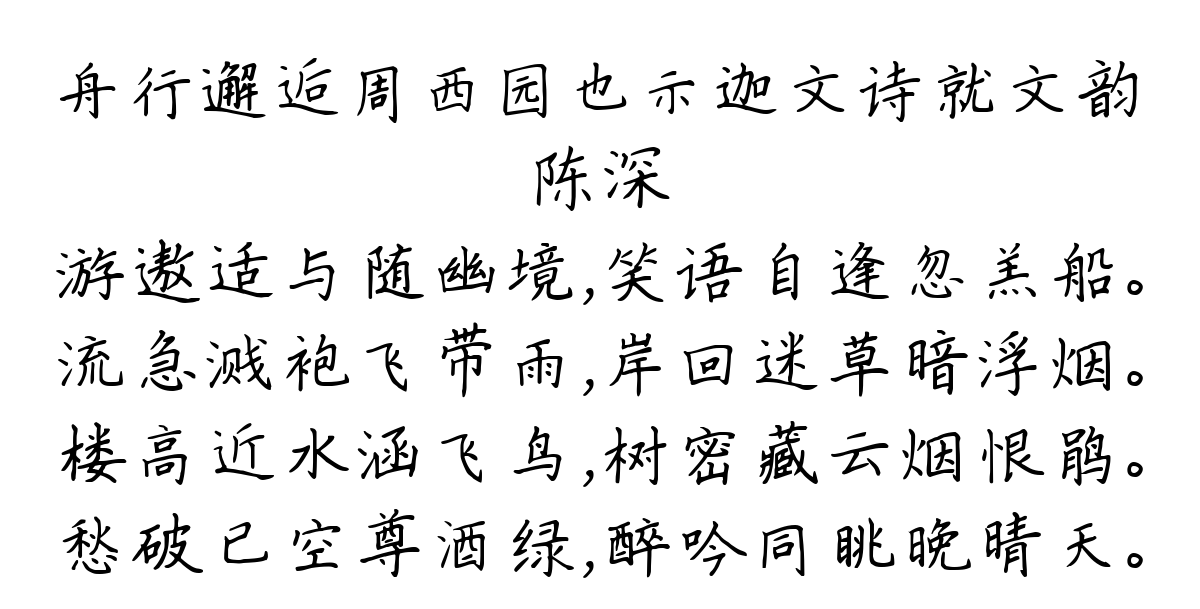 舟行邂逅周西园也示迦文诗就文韵
陈深
游遨适与随幽境,笑语自逢忽羔船。
流急溅袍飞带雨,岸回迷草暗浮烟。
楼高近水涵飞鸟,树密藏云烟恨鹃。
愁破已空尊酒绿,醉吟同眺晚晴天。